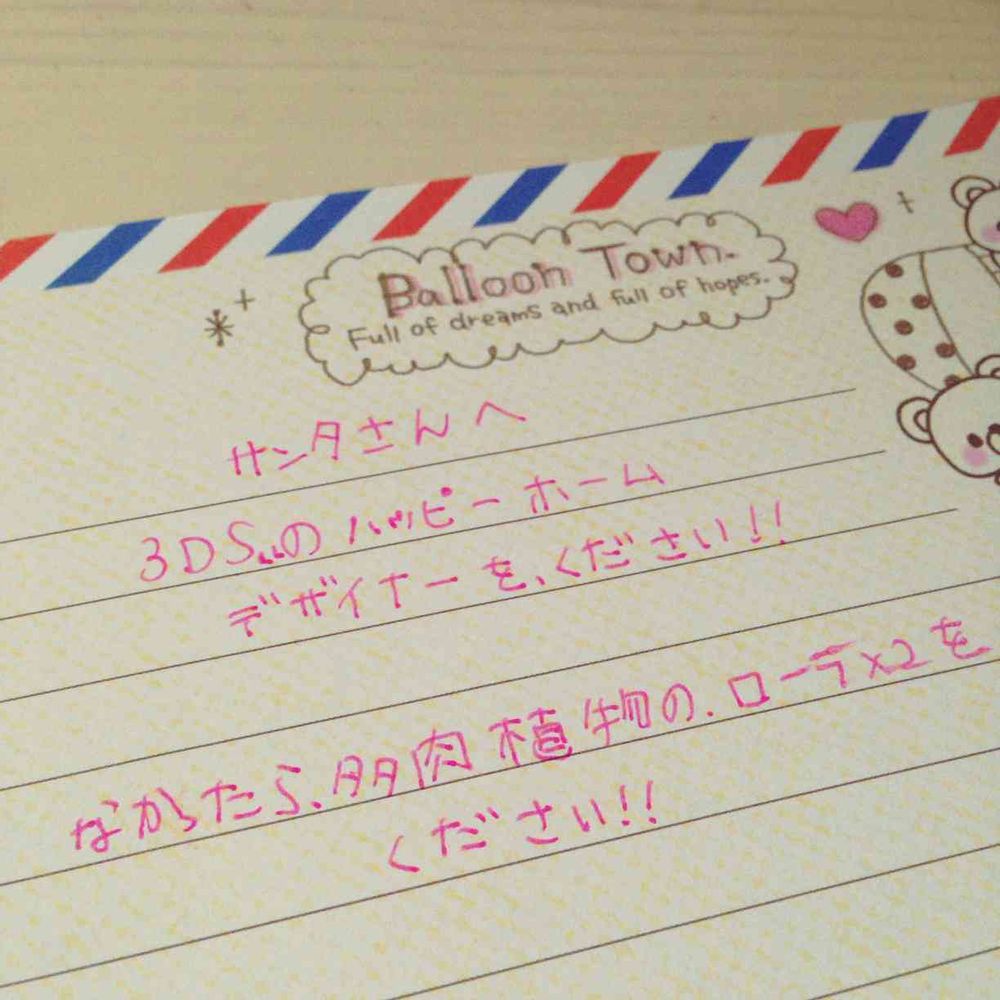 Balloon Town.
Full of dreams and full of hopes.
サンタさんへ
3DSのハッピーホーム
デザイナーを、ください!!
なかったら、多肉植物の.ローラ×2を
ください!!